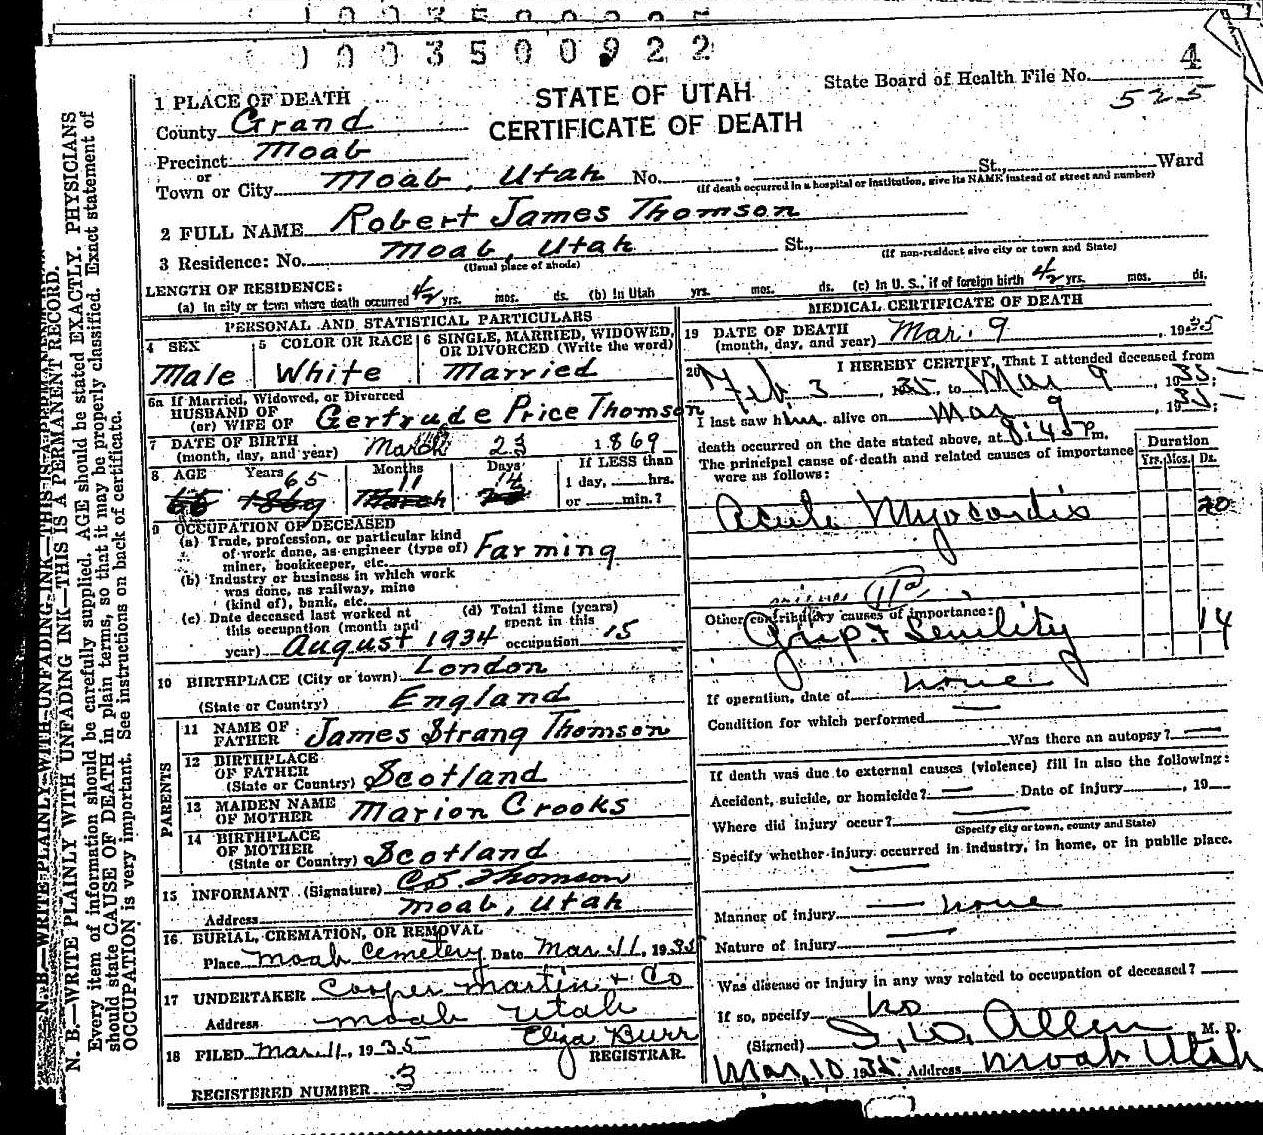 0003500922
4
State Board of Health File No. 525
STATE OF UTAH
CERTIFICATE OF DEATH
1 PLACE OF DEATH
County Grand
Precinct Moab
or
Town or City Moab, Utah No. St., Ward
(If death occurred in a hospital or institution, give its NAME instead of street and number)
2 FULL NAME Robert James Thomson
3 Residence: No. Moab, Utah St.,
(Usual place of abode) (If non-resident give city or town and State)
LENGTH OF RESIDENCE:
(a) In city or town where death occurred 42 yrs. mos. ds. (b) In Utah yrs. mos. ds. (c) In U. S., if of foreign birth 42 yrs. mos. ds.
PERSONAL AND STATISTICAL PARTICULARS
4 SEX Male
5 COLOR OR RACE White
6 SINGLE, MARRIED, WIDOWED, OR DIVORCED (Write the word) Married
6a If Married, Widowed, or Divorced
HUSBAND OF
(or) WIFE OF Gertrude Price Thomson
7 DATE OF BIRTH
(month, day, and year) March 23 1869
8 AGE Years 65 Months 11 Days 14 If LESS than
1 day, hrs.
or min.?
9 OCCUPATION OF DECEASED
(a) Trade, profession, or particular kind
of work done, as engineer (type of)
miner, bookkeeper, etc. Farming
(b) Industry or business in which work
was done, as railway, mine
(kind of), bank, etc.
(c) Date deceased last worked at
this occupation (month and
year) August 1934
(d) Total time (years)
spent in this
occupation 15
10 BIRTHPLACE (City or town) London
(State or Country) England
PARENTS
11 NAME OF
FATHER James Strang Thomson
12 BIRTHPLACE
OF FATHER
(State or Country) Scotland
13 MAIDEN NAME
OF MOTHER Marion Crooks
14 BIRTHPLACE
OF MOTHER
(State or Country) Scotland
15 INFORMANT (Signature) Thomson
Address Moab, Utah
16. BURIAL, CREMATION, OR REMOVAL
Place Moab Cemetery Date Mar. 11, 1935
17 UNDERTAKER Cooper Martin & Co
Address Moab Utah
18 FILED Mar. 11, 1935 Eliza Burr
REGISTRAR.
REGISTERED NUMBER 3
MEDICAL CERTIFICATE OF DEATH
19 DATE OF DEATH
(month, day, and year) Mar. 9, 1935
20 I HEREBY CERTIFY, That I attended deceased from
Feb. 3, 1935, to Mar 9, 1935;
I last saw him alive on Mar 9, 1935;
death occurred on the date stated above, at 8:45 P m.
The principal cause of death and related causes of importance
were as follows:
Duration
Yrs. Mos. Ds.
Acute Myocardis 20
11a
Other contributory causes of importance:
Grip & Senility 14
If operation, date of none
Condition for which performed
Was there an autopsy?
If death was due to external causes (violence) fill in also the following:
Accident, suicide, or homicide? Date of injury , 19
Where did injury occur?
(Specify city or town, county and State)
Specify whether injury occurred in industry, in home, or in public place.
Manner of injury none
Nature of injury
Was disease or injury in any way related to occupation of deceased?
If so, specify no
(Signed) I. W. Allen M. D.
Mar. 10 1935 Address Moab Utah
N. B.—WRITE PLAINLY WITH UNFADING INK—THIS IS A PERMANENT RECORD.
Every item of information should be carefully supplied. AGE should be stated EXACTLY. PHYSICIANS
should state CAUSE OF DEATH in plain terms, so that it may be properly classified. Exact statement of
OCCUPATION is very important. See instructions on back of certificate.